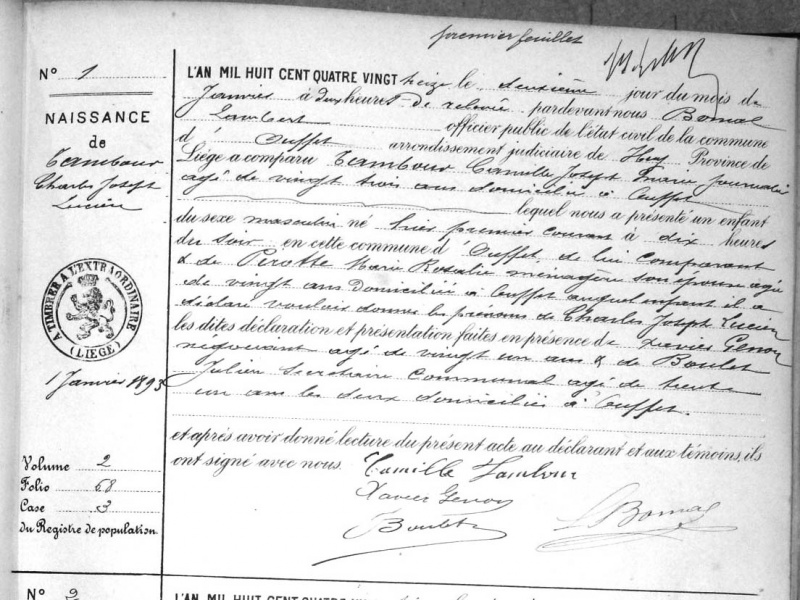 premier feuillet
N° 1
NAISSANCE
de
Tambour
Charles Joseph
Lucien
A TIMBRER A L'EXTRAORDINAIRE
(LIEGE)
1 Janvier 1893
Volume 2
Folio 68
Case 3
du Registre de population
L'AN MIL HUIT CENT QUATRE VINGT treize le deuxième jour du mois de
Janvier à dix heures de relevée pardevant nous Bomal
Lambert officier public de l'état civil de la commune
d' Ouffet arrondissement judiciaire de Huy Province de
Liége a comparu Tambour Camille Joseph Marie journalier
agé de vingt trois ans domicilié à Ouffet
lequel nous a présenté un enfant
du sexe masculin né hier premier courant à dix heures
du soir en cette commune d' Ouffet, de lui comparant
& de Pirotte Marie Rosalie ménagère son épouse agée
de vingt ans domiciliée à Ouffet auquel enfant il a
déclaré vouloir donner les prénoms de Charles Joseph Lucien
les dites déclaration et présentation faites en présence de Xavier Genon
négociant agé de vingt un ans & de Boulet
Julien Secrétaire communal agé de trente
un ans les deux domiciliés à Ouffet.
et après avoir donné lecture du présent acte au déclarant et aux témoins, ils
ont signé avec nous. Camille Tambour
Xavier Genon
Boulet
L Bomal
N° 2
L'AN MIL HUIT CENT QUATRE VINGT